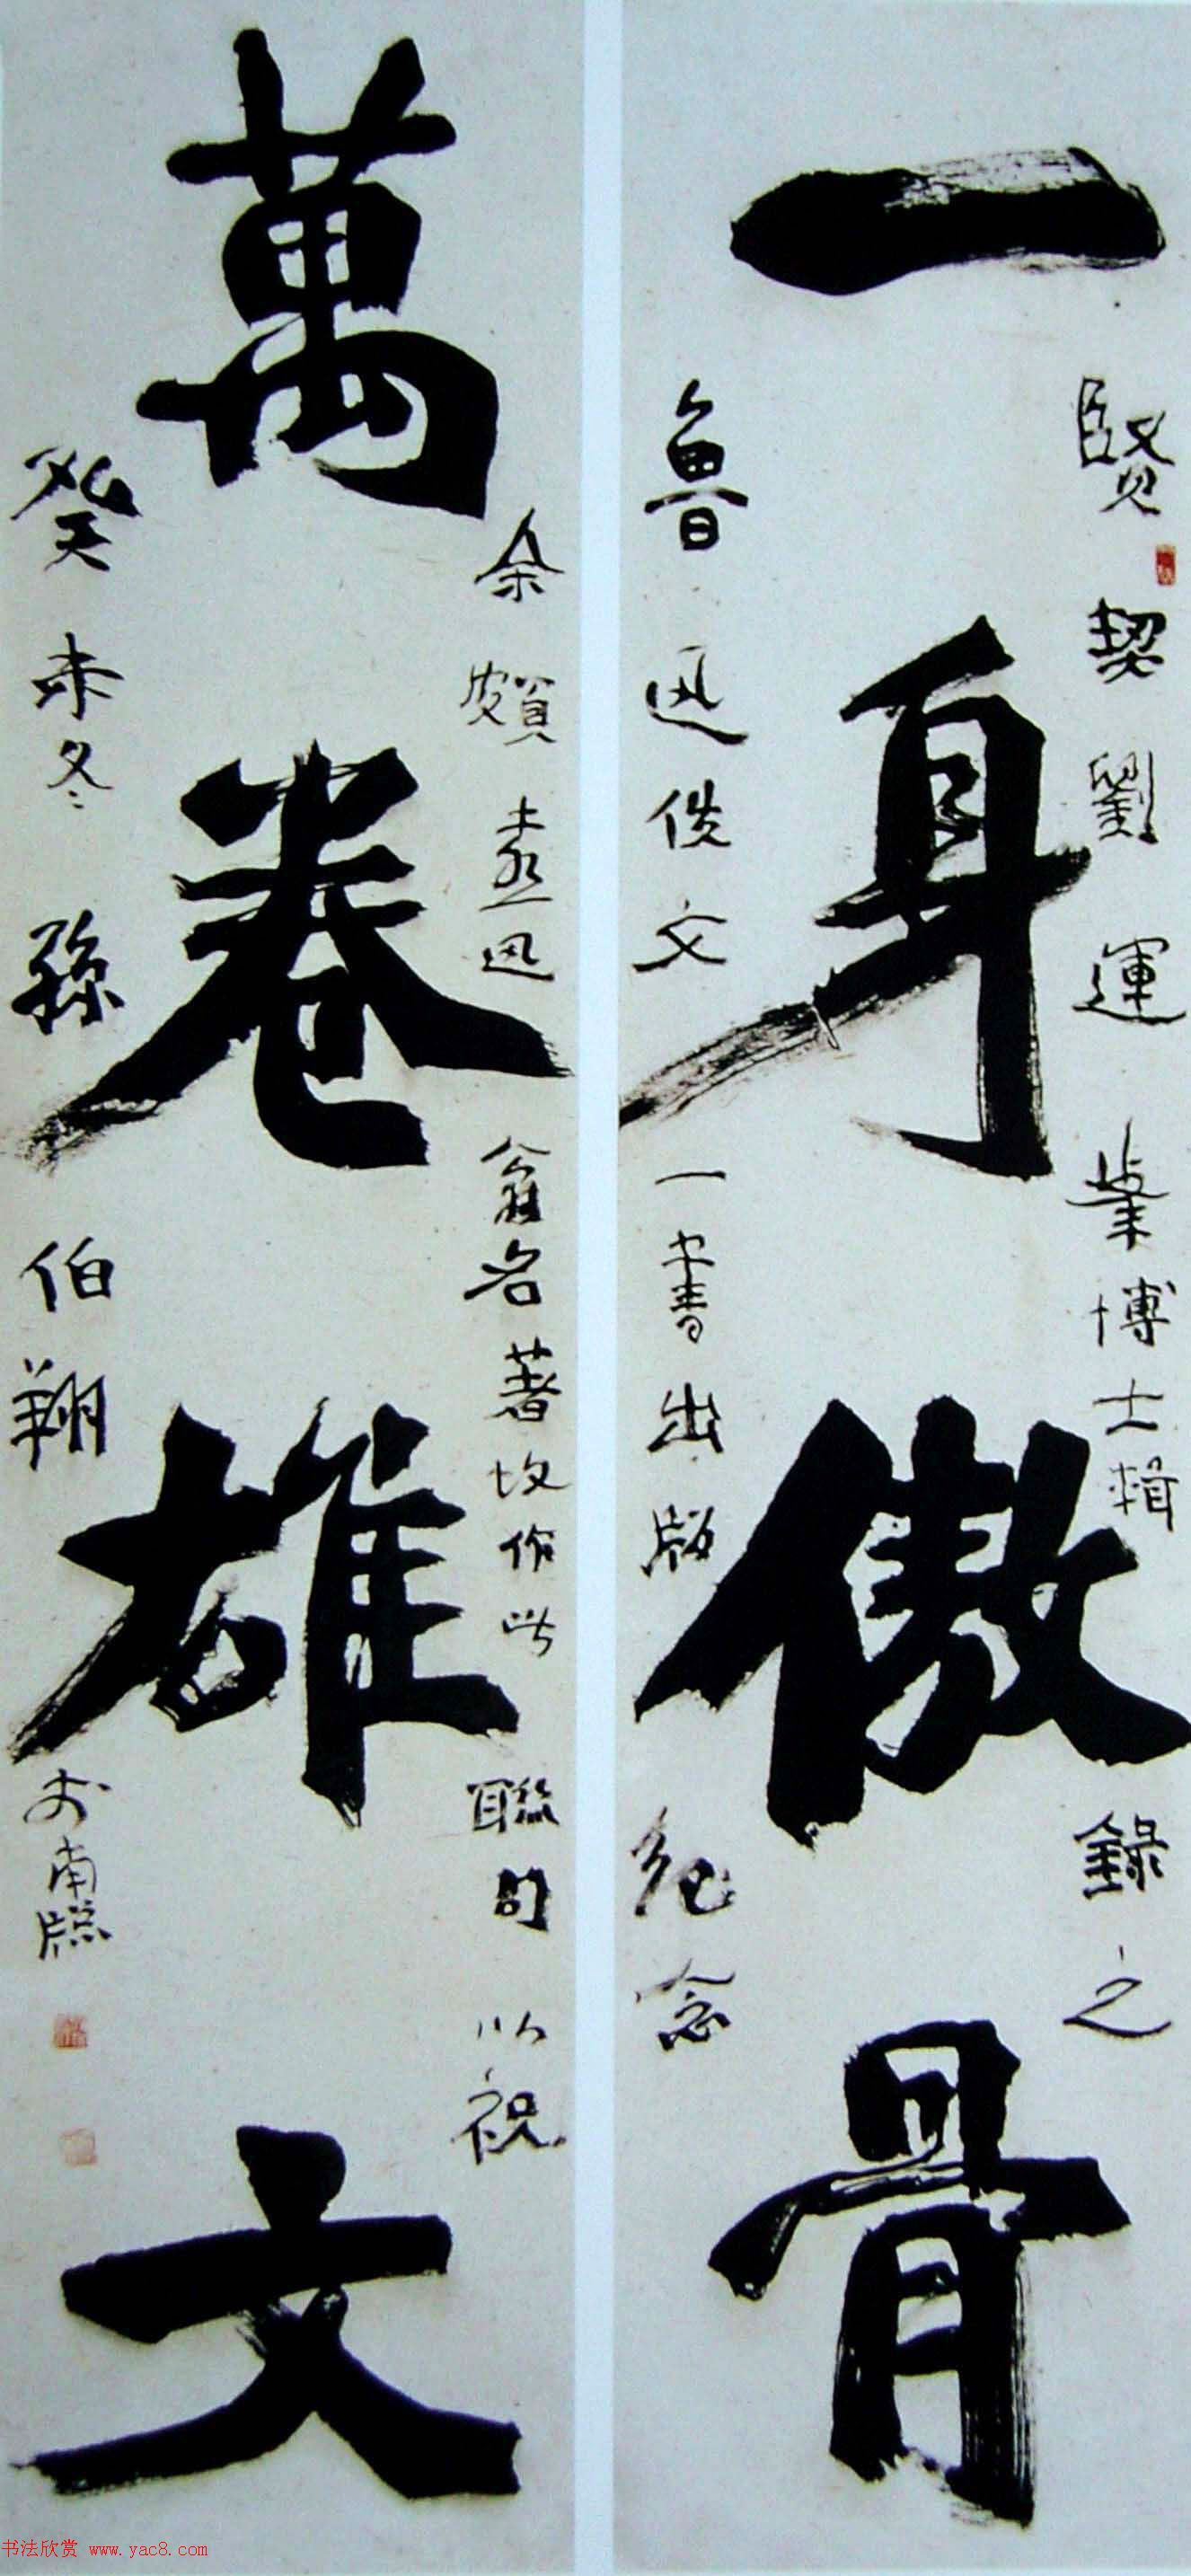 一身傲骨
賢契劉運峯博士輯錄之
魯迅佚文一書出版紀念
萬卷雄文
余頗熹迅翁名著故作此聯句以祝
癸未冬孫伯翔於南牕
书法欣赏 www.yac8.com